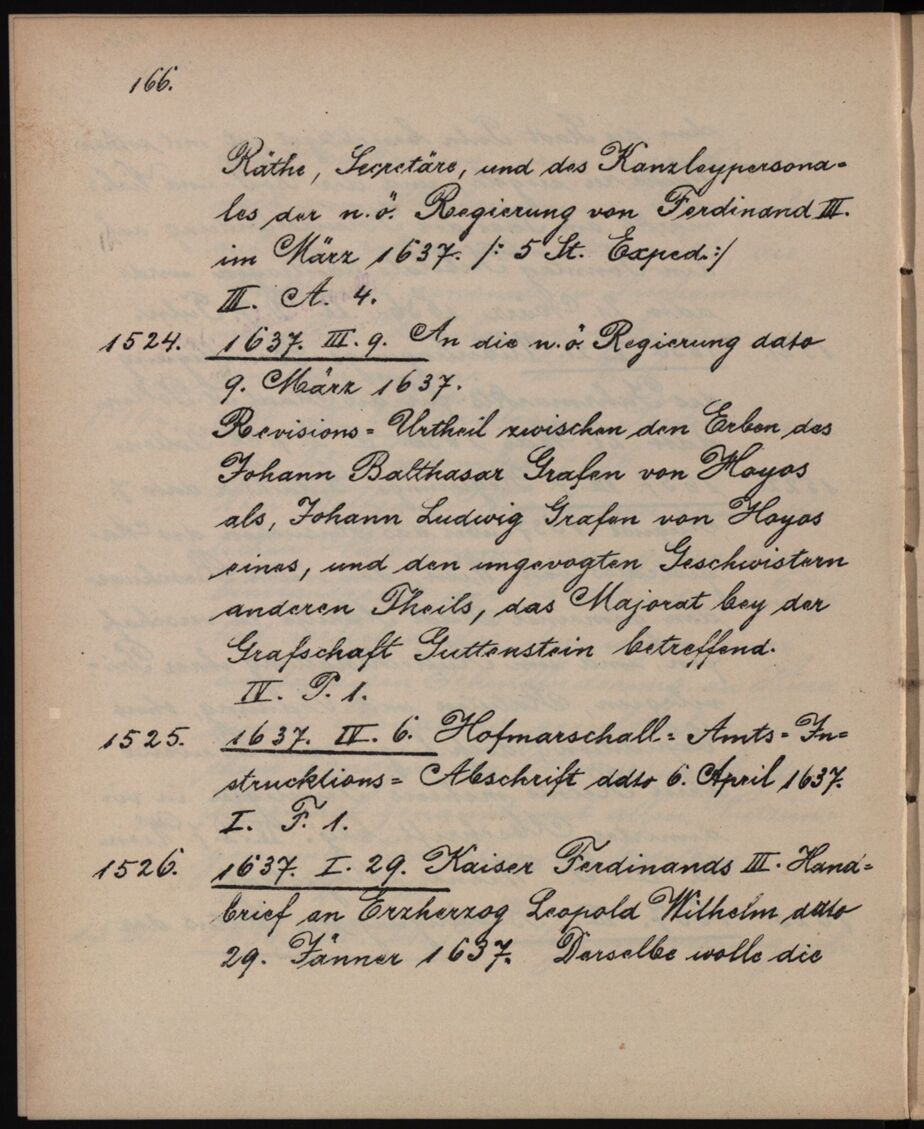 166.
Räthe, Secretäre, und des Kanzleypersona=
les der n. ö. Regierung von Ferdinand III.
im März 1637. /: 5 St. Exped. :/
III. A. 4.
1524. 1637. III. 9. An die n. ö. Regierung dato
9. März 1637.
Revisions= Urtheil zwischen den Erben des
Johann Balthasar Grafen von Hoyos
als, Johann Ludwig Grafen von Hoyos
eines, und den ungevogten Geschwistern
anderen Theils, das Majorat bey der
Grafschaft Guttenstein betreffend.
IV. P. 1.
1525. 1637. IV. 6. Hofmarschall= Amts= In=
strucktions= Abschrift ddto 6. April 1637.
I. F. 1.
1526. 1637. I. 29. Kaiser Ferdinands III. Hand=
brief an Erzherzog Leopold Wilhelm ddto
29. Jänner 1637. Derselbe wolle die